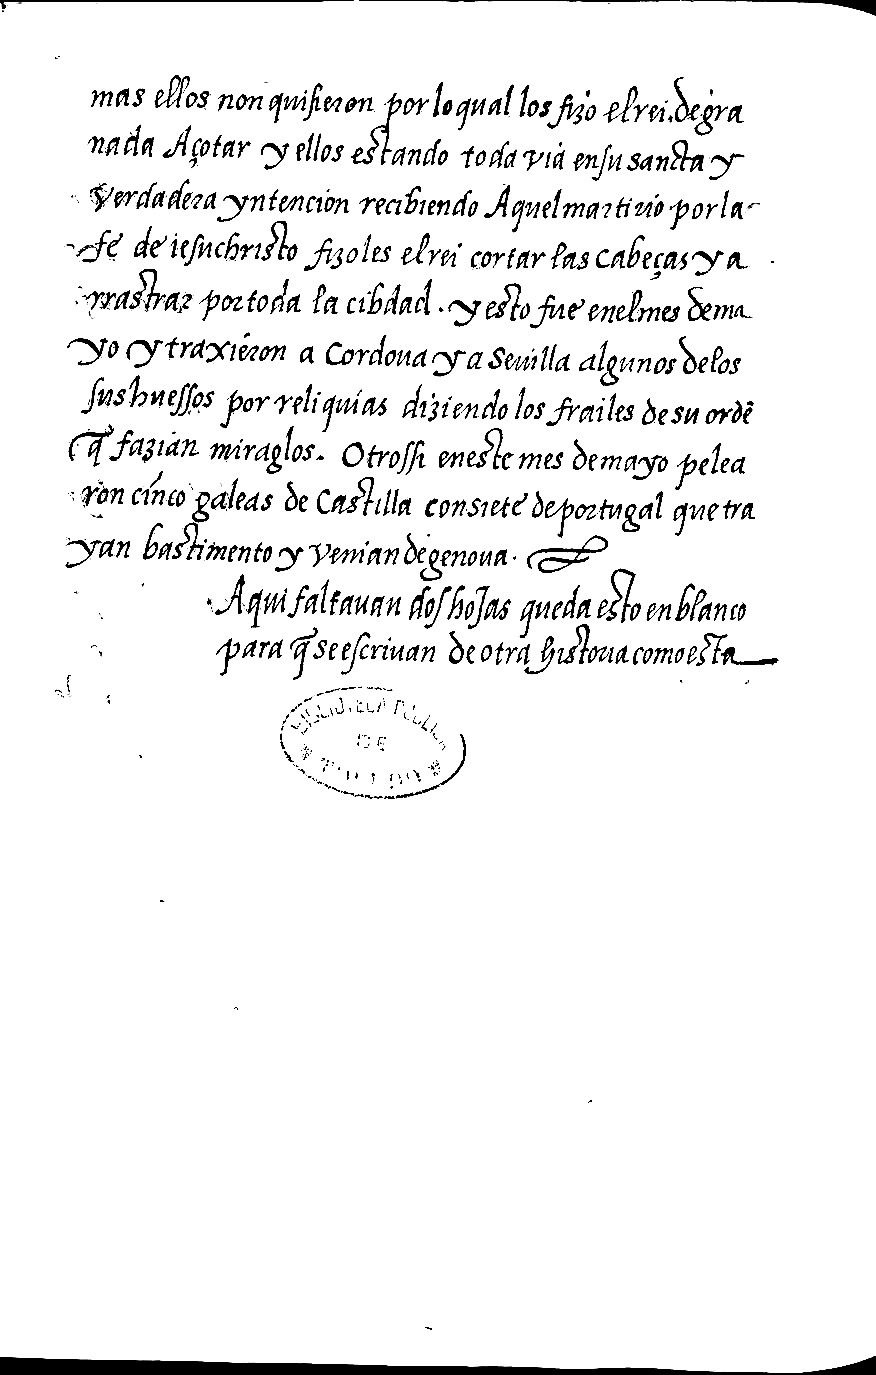 mas ellos non quisieron por lo qual los fizo el rei. de gra
nada Açotar y ellos estando toda via en su sancta y
Verdadera yntencion recibiendo Aquel martirio por la
fe de iesuchristo fizoles el rei cortar las Cabeças y a
rrastrar por toda la cibdad. y esto fue en el mes de ma
yo y traxieron a Cordoua y a Seuilla algunos de los
sus huessos por reliquias diziendo los frailes de su ordē
q̃ fazian miraglos. Otrossi en este mes de mayo pelea
ron cinco galeas de Castilla con siete de portugal que tra
yan bastimento y Venian de genoua.
Aqui faltauan dos hojas queda esto en blanco
para q̃ se escriuan de otra historia como esta
DE